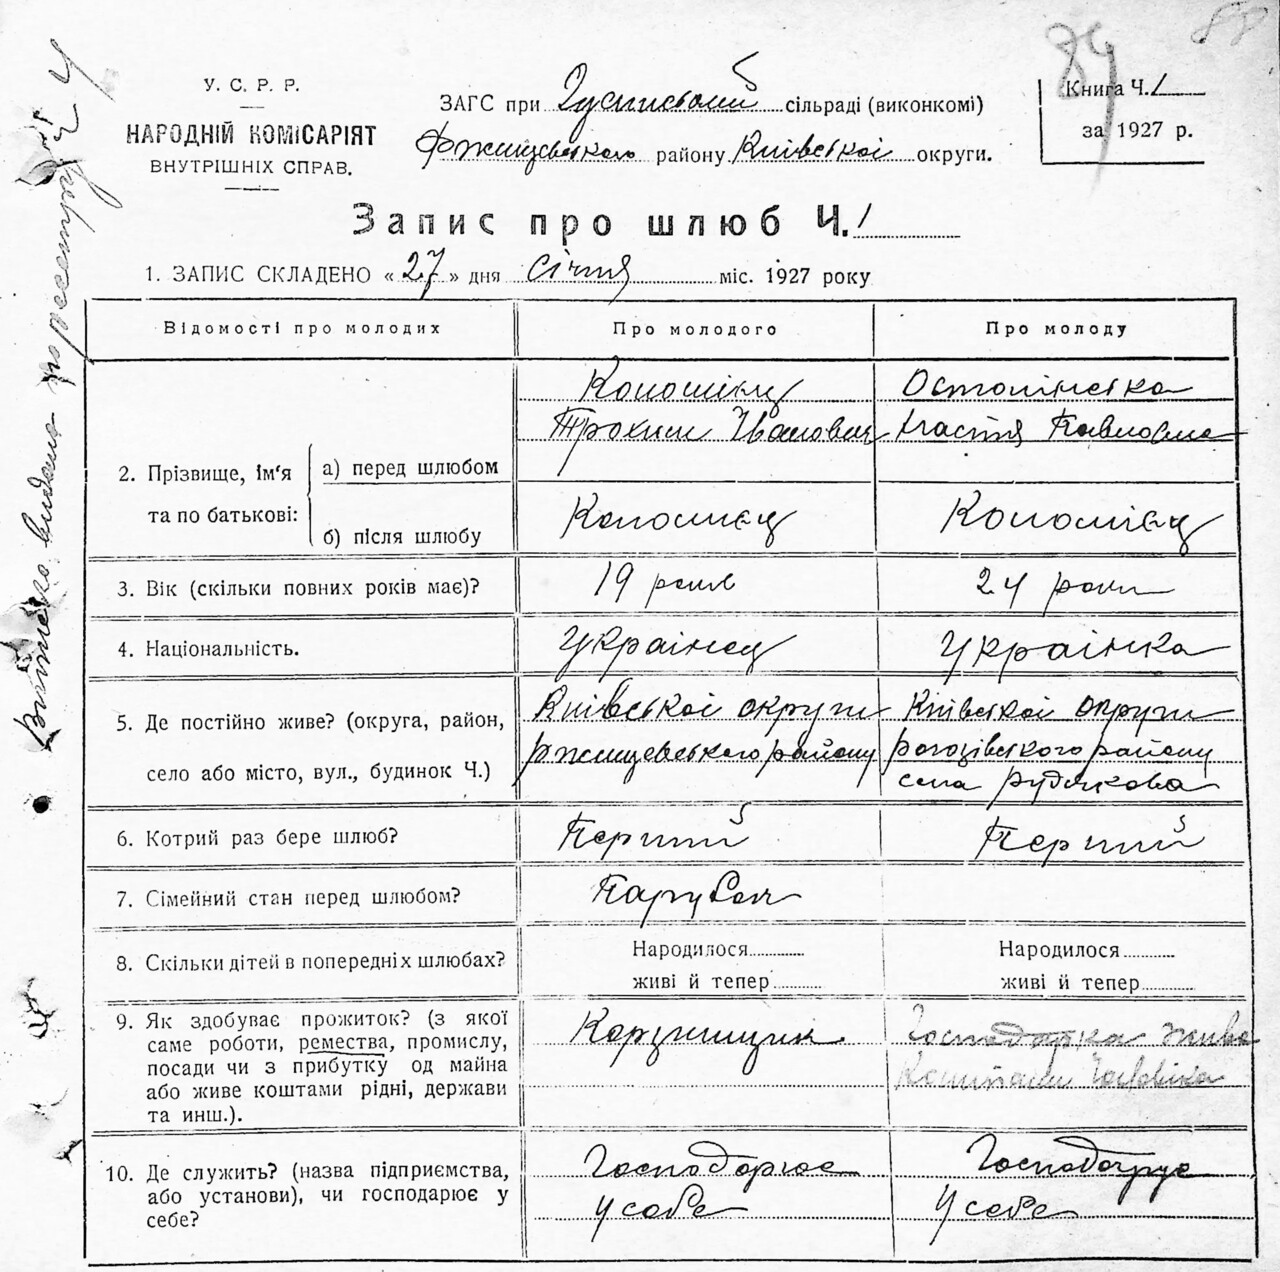 88
89
У. С. Р. Р.
НАРОДНІЙ КОМІСАРІЯТ
ВНУТРІШНІХ СПРАВ.
ЗАГС при сільраді (виконкомі)
Ржищевського району Київської округи.
Книга Ч. 1
за 1927 р.
Запис про шлюб Ч. 1
1. ЗАПИС СКЛАДЕНО « 27 » дня січня міс. 1927 року
Відомості про молодих Про молодого Про молоду
2. Прізвище, ім'я та по батькові:
а) перед шлюбом
Коломієц
Трохим Іванович
Настя Павловна
б) після шлюбу
Коломиєц
Коломієц
3. Вік (скільки повних років має)? 19 років 24 роки
4. Національність. Українец Українка
5. Де постійно живе? (округа, район,
село або місто, вул., будинок Ч.)
Київської округи
Ржищевського району
Київської округи
рогозівського району
села Рудякова
6. Котрий раз бере шлюб? Перший Перший
7. Сімейний стан перед шлюбом? Парубок
8. Скільки дітей в попередніх шлюбах?
Народилося
живі й тепер
Народилося
живі й тепер
9. Як здобуває прожиток? (з якої
саме роботи, ремества, промислу,
посади чи з прибутку од майна
або живе коштами рідні, держави
та инш.).
Корзинщик
Господарка живе
Коштами Чоловіка
10. Де служить? (назва підприємства,
або установи), чи господарює у
себе?
Господарює
У себе
Господарує
У себе
Витяг видано